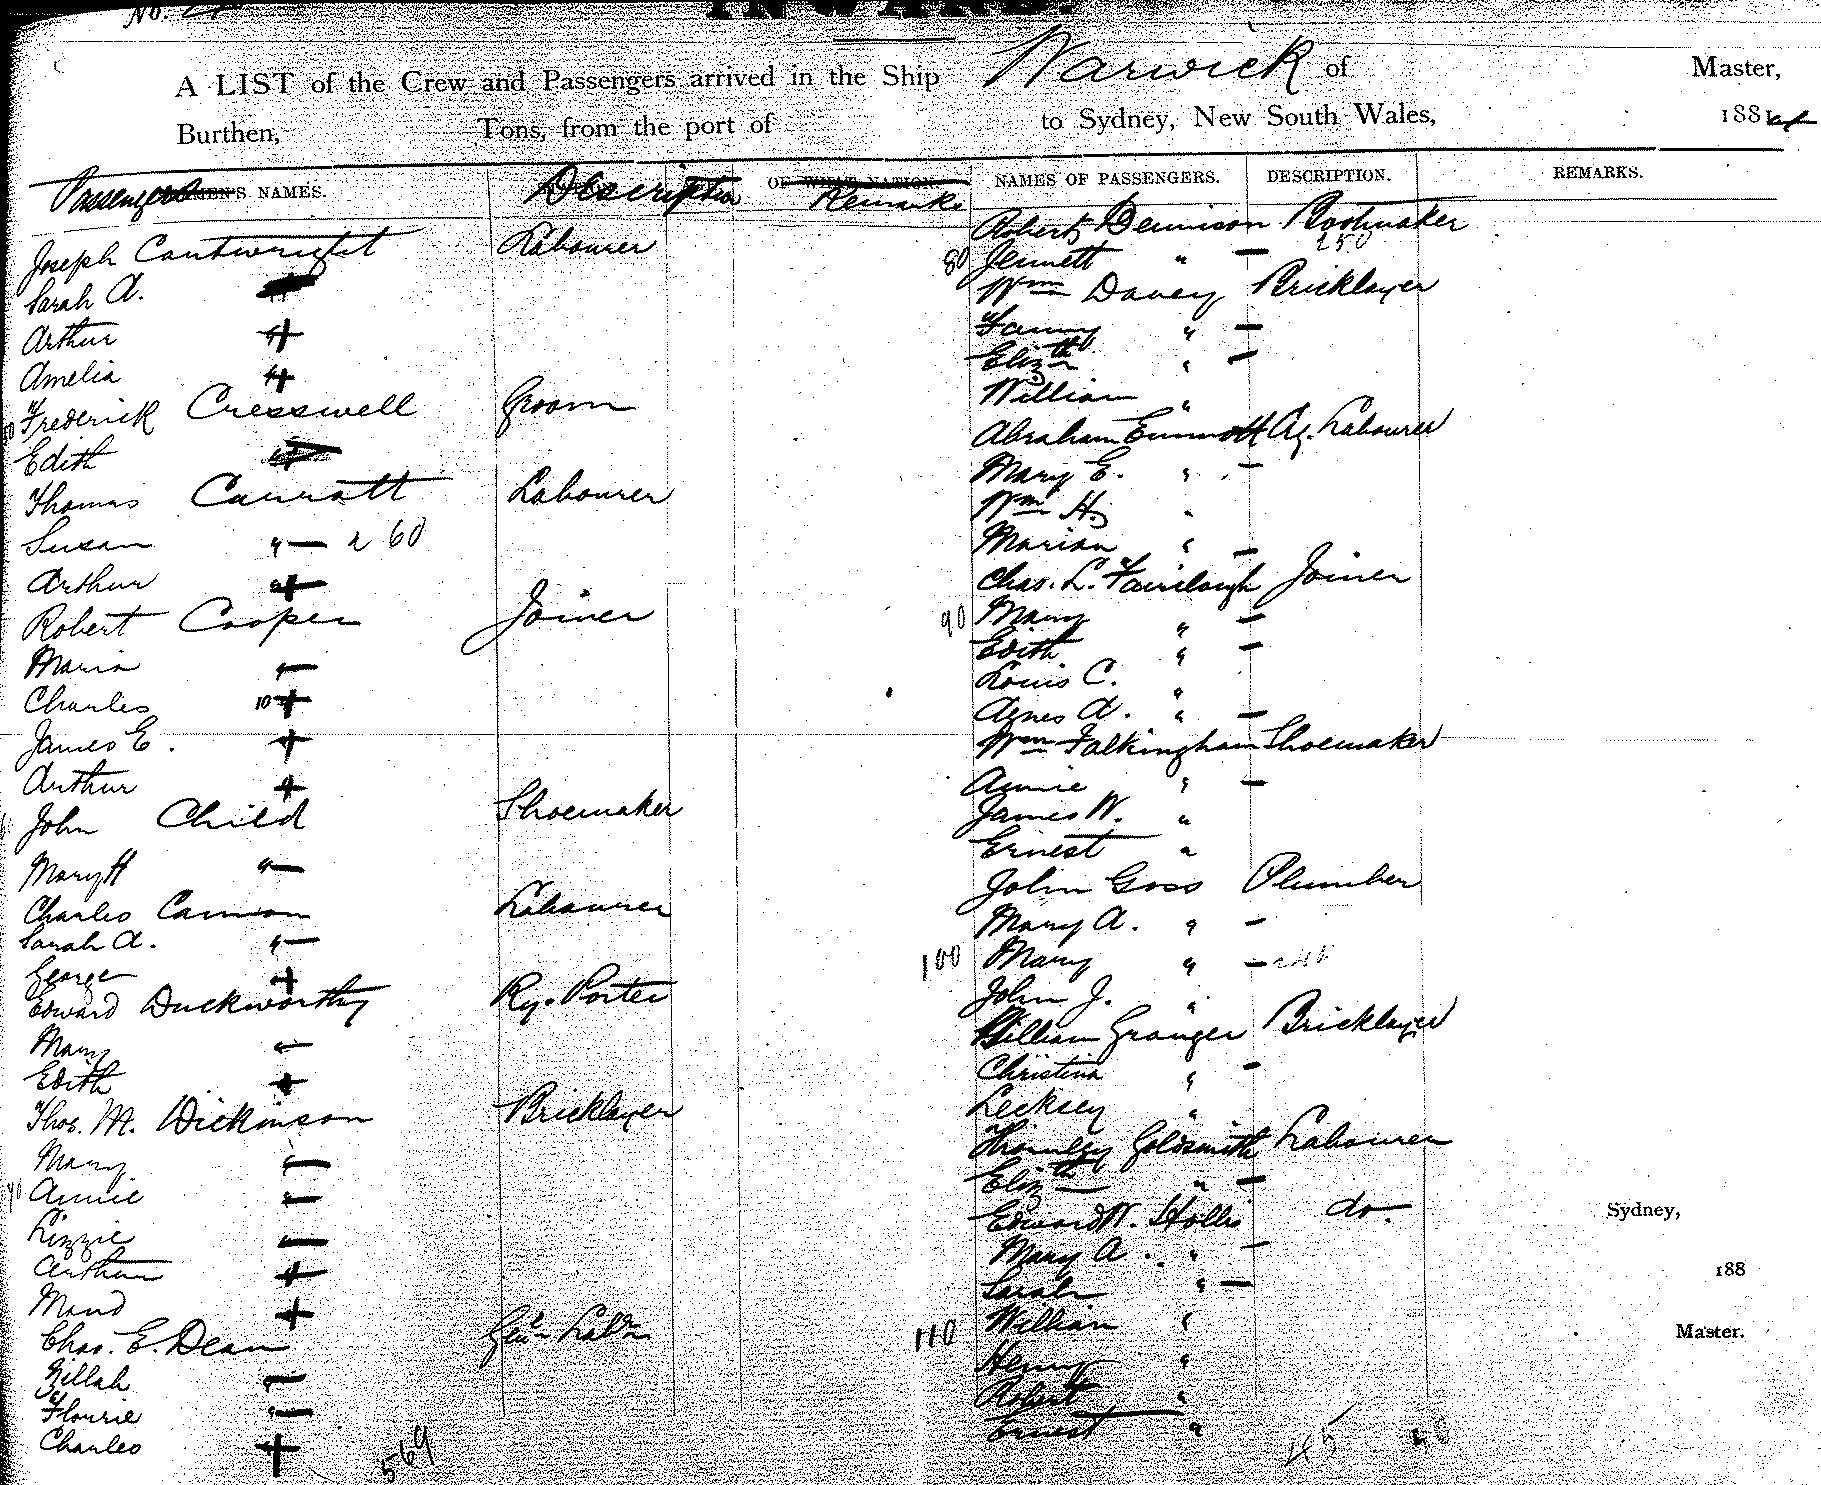 No.
INWARD.
A LIST of the Crew and Passengers arrived in the Ship Warwick of Master,
Burthen, Tons, from the port of to Sydney, New South Wales, 1884
Passengers NAMES. Description Remarks
Joseph Cantwright Labourer
Sarah A.
Arthur "
Amelia "
Frederick Cresswell Groom
Edith "
Thomas Carratt Labourer
Susan " — 260
Arthur "
Robert Cooper Joiner
Maria "
Charles 10
James E. "
Arthur "
John Child Shoemaker
Mary H " —
Charles Cannon Labourer
Sarah A. " —
George "
Edward Duckworthy Ry. Porter
Mary "
Edith "
Thos. M. Dickinson Bricklayer
Mary " —
40 Annie " —
Lizzie " —
Arthur "
Maud "
Chas. E. Dean Genl. Labr
Zillah " —
Flourie " —
Charles "
569
NAMES OF PASSENGERS. DESCRIPTION. REMARKS.
Robert Dennison Bootmaker
80 Jennett " — 250
Wm Davey Bricklayer
Fanny " —
Elizth " —
William "
Abraham Emmott Ag. Labourer
Mary E. " —
Wm H. "
Marian " —
Chas. L. Fairclough Joiner
90 Mary " —
Edith " —
Louis C. "
Agnes A. " —
Wm Falkingham Shoemaker
Annie " —
James W. "
Ernest "
John Goss Plumber
Mary A. " —
100 Mary " —
John J. "
William Granger Bricklayer
Christina " —
Lecksey "
Thornley Goldsmith Labourer
Elizth " —
Edward W. Hollis do.
Mary A. " —
Sarah " —
110 William "
Henry "
Robert "
Ernest "
Sydney,
188
Master.